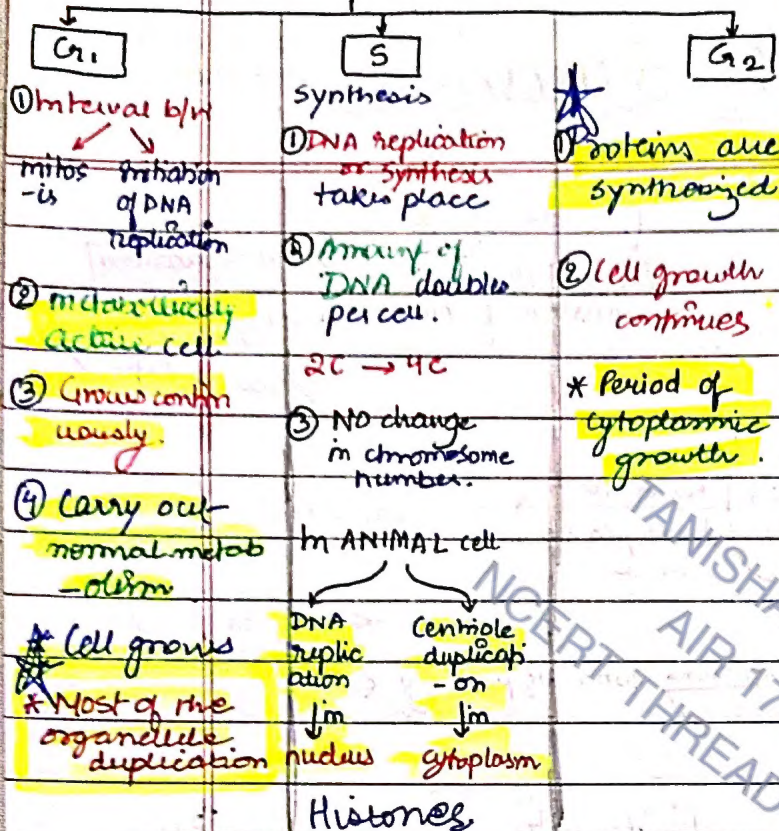 G1
① Interval b/w
mitos
-is
Initiation
of DNA
replication
② metabolically
active cell
③ Grows contin
uously.
④ Carry out
normal metab
-olism
* Cell grows
* Most of the
organelle
duplication
S
Synthesis
① DNA replication
or synthesis
takes place
② Amount of
DNA doubles
per cell.
2C → 4C
③ No change
in chromosome
number.
In ANIMAL cell
DNA
replic
ation
↓in
nucleus
Centriole
duplicati
-on
↓in
cytoplasm
Histones
G2
① Proteins are
synthesized
② Cell growth
continues
* Period of
cytoplasmic
growth.
TANISHA
AIR 17
NCERT THREAD